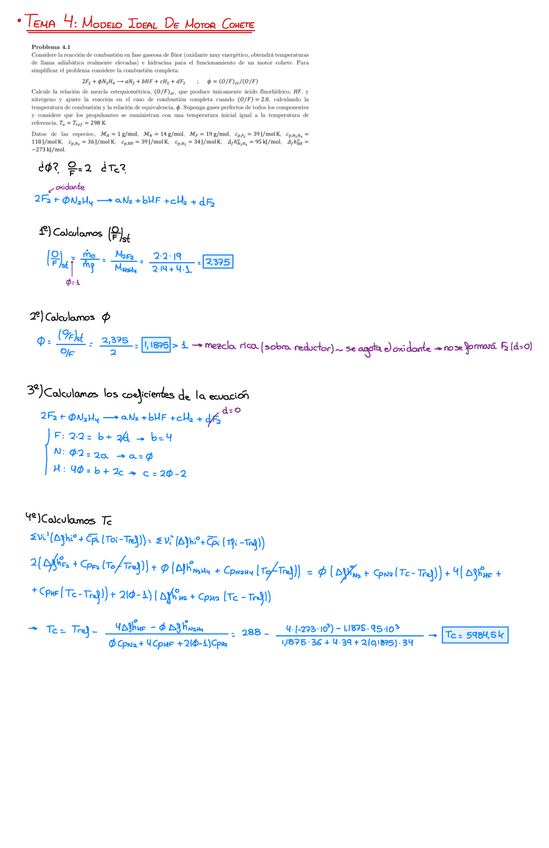 • TEMA 4: MODELO IDEAL DE MOTOR COHETE
Problema 4.1
Considere la reacción de combustión en fase gaseosa de flúor (oxidante muy energético, obtendrá temperaturas
de llama adiabática realmente elevadas) e hidracina para el funcionamiento de un motor cohete. Para
simplificar el problema considere la combustión completa:
2F₂ + ϕN₂H₄ ⟶ aN₂ + bHF + cH₂ + dF₂ ; ϕ = (O/F)st/(O/F)
Calcule la relación de mezcla estequiométrica, (O/F)st, que produce únicamente ácido fluorhídrico, HF, y
nitrógeno y ajuste la reacción en el caso de combustión completa cuando (O/F) = 2.0, calculando la
temperatura de combustión y la relación de equivalencia, ϕ. Suponga gases perfectos de todos los componentes
y considere que los propulsantes se suministran con una temperatura inicial igual a la temperatura de
referencia, To = Tref = 298 K.
Datos de las especies:, MH = 1 g/mol, MN = 14 g/mol, MF = 19 g/mol, cp,F₂ = 39 J/mol K, cp,N₂H₄ =
118 J/mol K, cp,N₂ = 36 J/mol K, cp,HF = 39 J/mol K, cp,H₂ = 34 J/mol K, Δfh⁰N₂H₄ = 95 kJ/mol, Δfh⁰HF =
−273 kJ/mol.
¿Ø? O/F = 2 ¿Tc?
oxidante
2F₂ + ØN₂H₄ ⟶ aN₂ + bHF + cH₂ + dF₂
1º) Calculamos (O/F)st
(O/F)st = ṁo/ṁf = M2F₂/MN₂H₄ = 2·2·19/2·14+4·1 = 2,375
Ø=1
2º) Calculamos Ø
Ø = (O/F)st/O/F = 2,375/2 = 1,1875 > 1 → mezcla rica (sobra reductor) ~ se agota el oxidante → no se formará F₂ (d=0)
3º) Calculamos los coeficientes de la ecuación
2F₂ + ØN₂H₄ ⟶ aN₂ + bHF + cH₂ + dF₂ d=0
F: 2·2 = b + 2d → b=4
N: Ø2 = 2a → a=Ø
H: 4Ø = b + 2c → c = 2Ø-2
4º) Calculamos Tc
Σνi'(Δfhi⁰ + Cpi (Toi-Tref)) = Σνi''(Δfhi⁰ + Cpi (Tfi-Tref))
2(Δfh⁰F₂ + CpF₂ (To-Tref)) + Ø (Δfh⁰N₂H₄ + CpN₂H₄ (To-Tref)) = Ø (Δfh⁰N₂ + CpN₂ (Tc-Tref)) + 4(Δfh⁰HF +
+ CpHF (Tc-Tref)) + 2(Ø-1) (Δfh⁰H₂ + CpH₂ (Tc-Tref))
→ Tc = Tref - 4Δfh⁰HF - ØΔfh⁰N₂H₄/ØCpN₂ + 4CpHF + 2(Ø-1)CpH₂ = 288 - 4·(-273·10³) - 1,1875·95·10³/1,1875·36 + 4·39 + 2(0,1875)·34 → Tc = 5984,5K